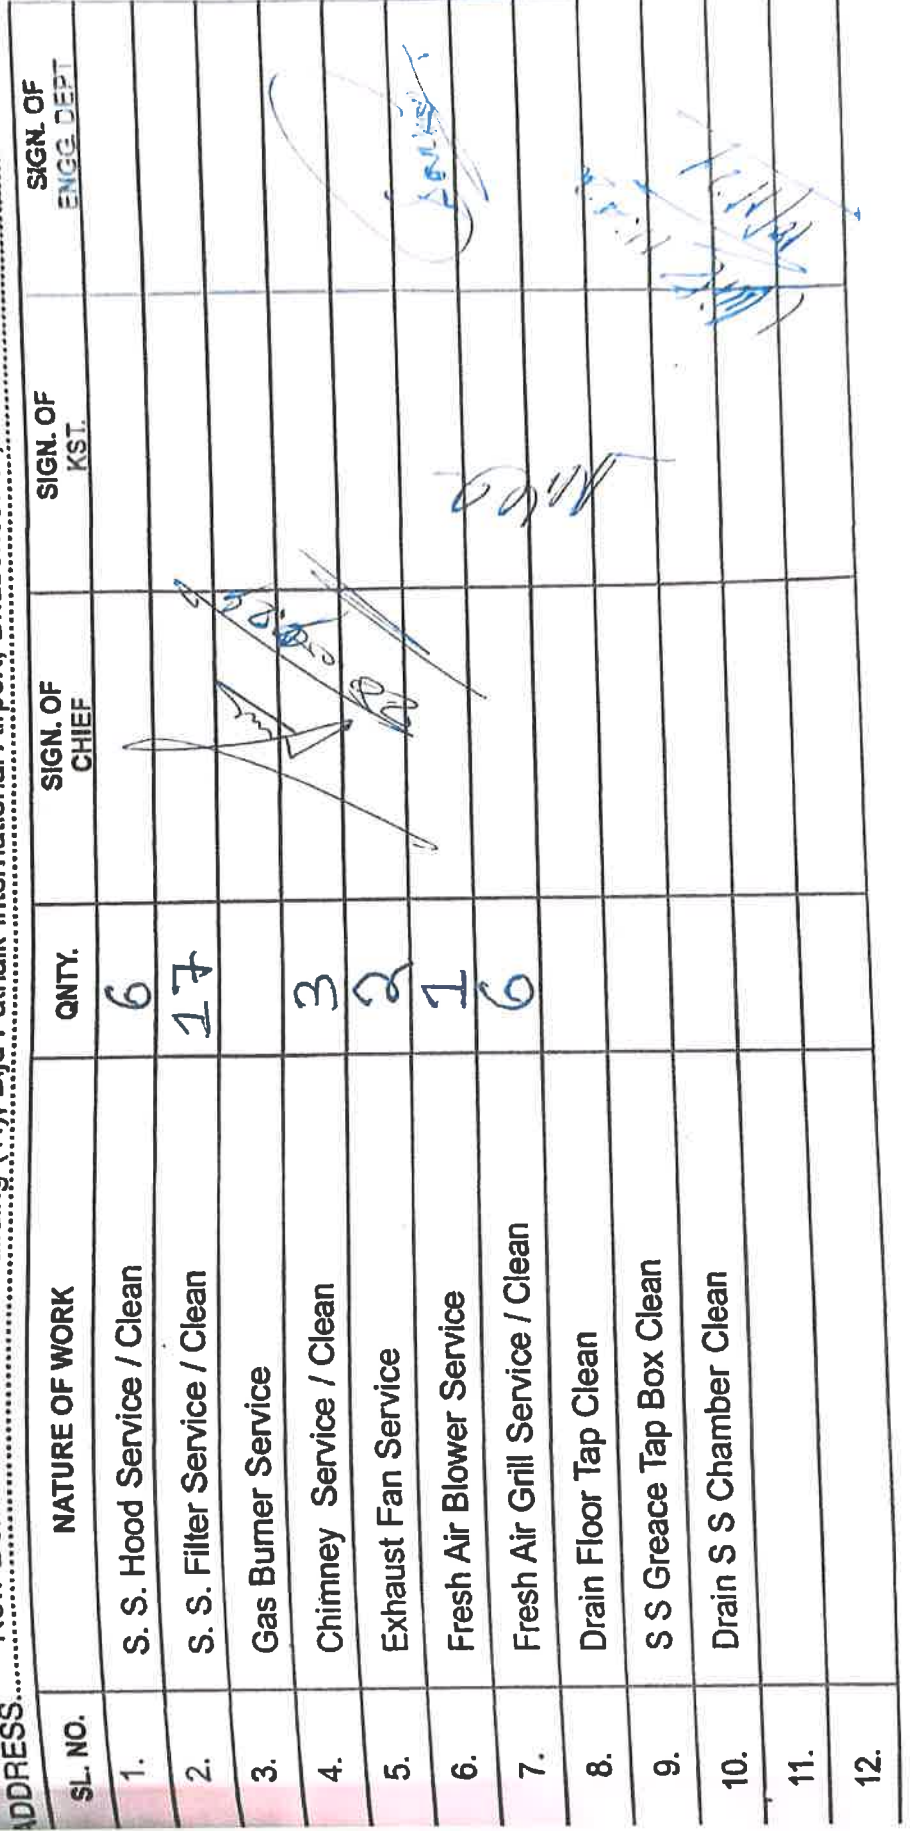 ADDRESS
SL. NO. NATURE OF WORK QNTY. SIGN. OF CHIEF SIGN. OF KST. SIGN. OF ENGG. DEPT
1. S. S. Hood Service / Clean 6
2. S. S. Filter Service / Clean 17
3. Gas Burner Service
4. Chimney Service / Clean 3
5. Exhaust Fan Service 2
6. Fresh Air Blower Service 1
7. Fresh Air Grill Service / Clean 6
8. Drain Floor Tap Clean
9. S S Greace Tap Box Clean
10. Drain S S Chamber Clean
11.
12.